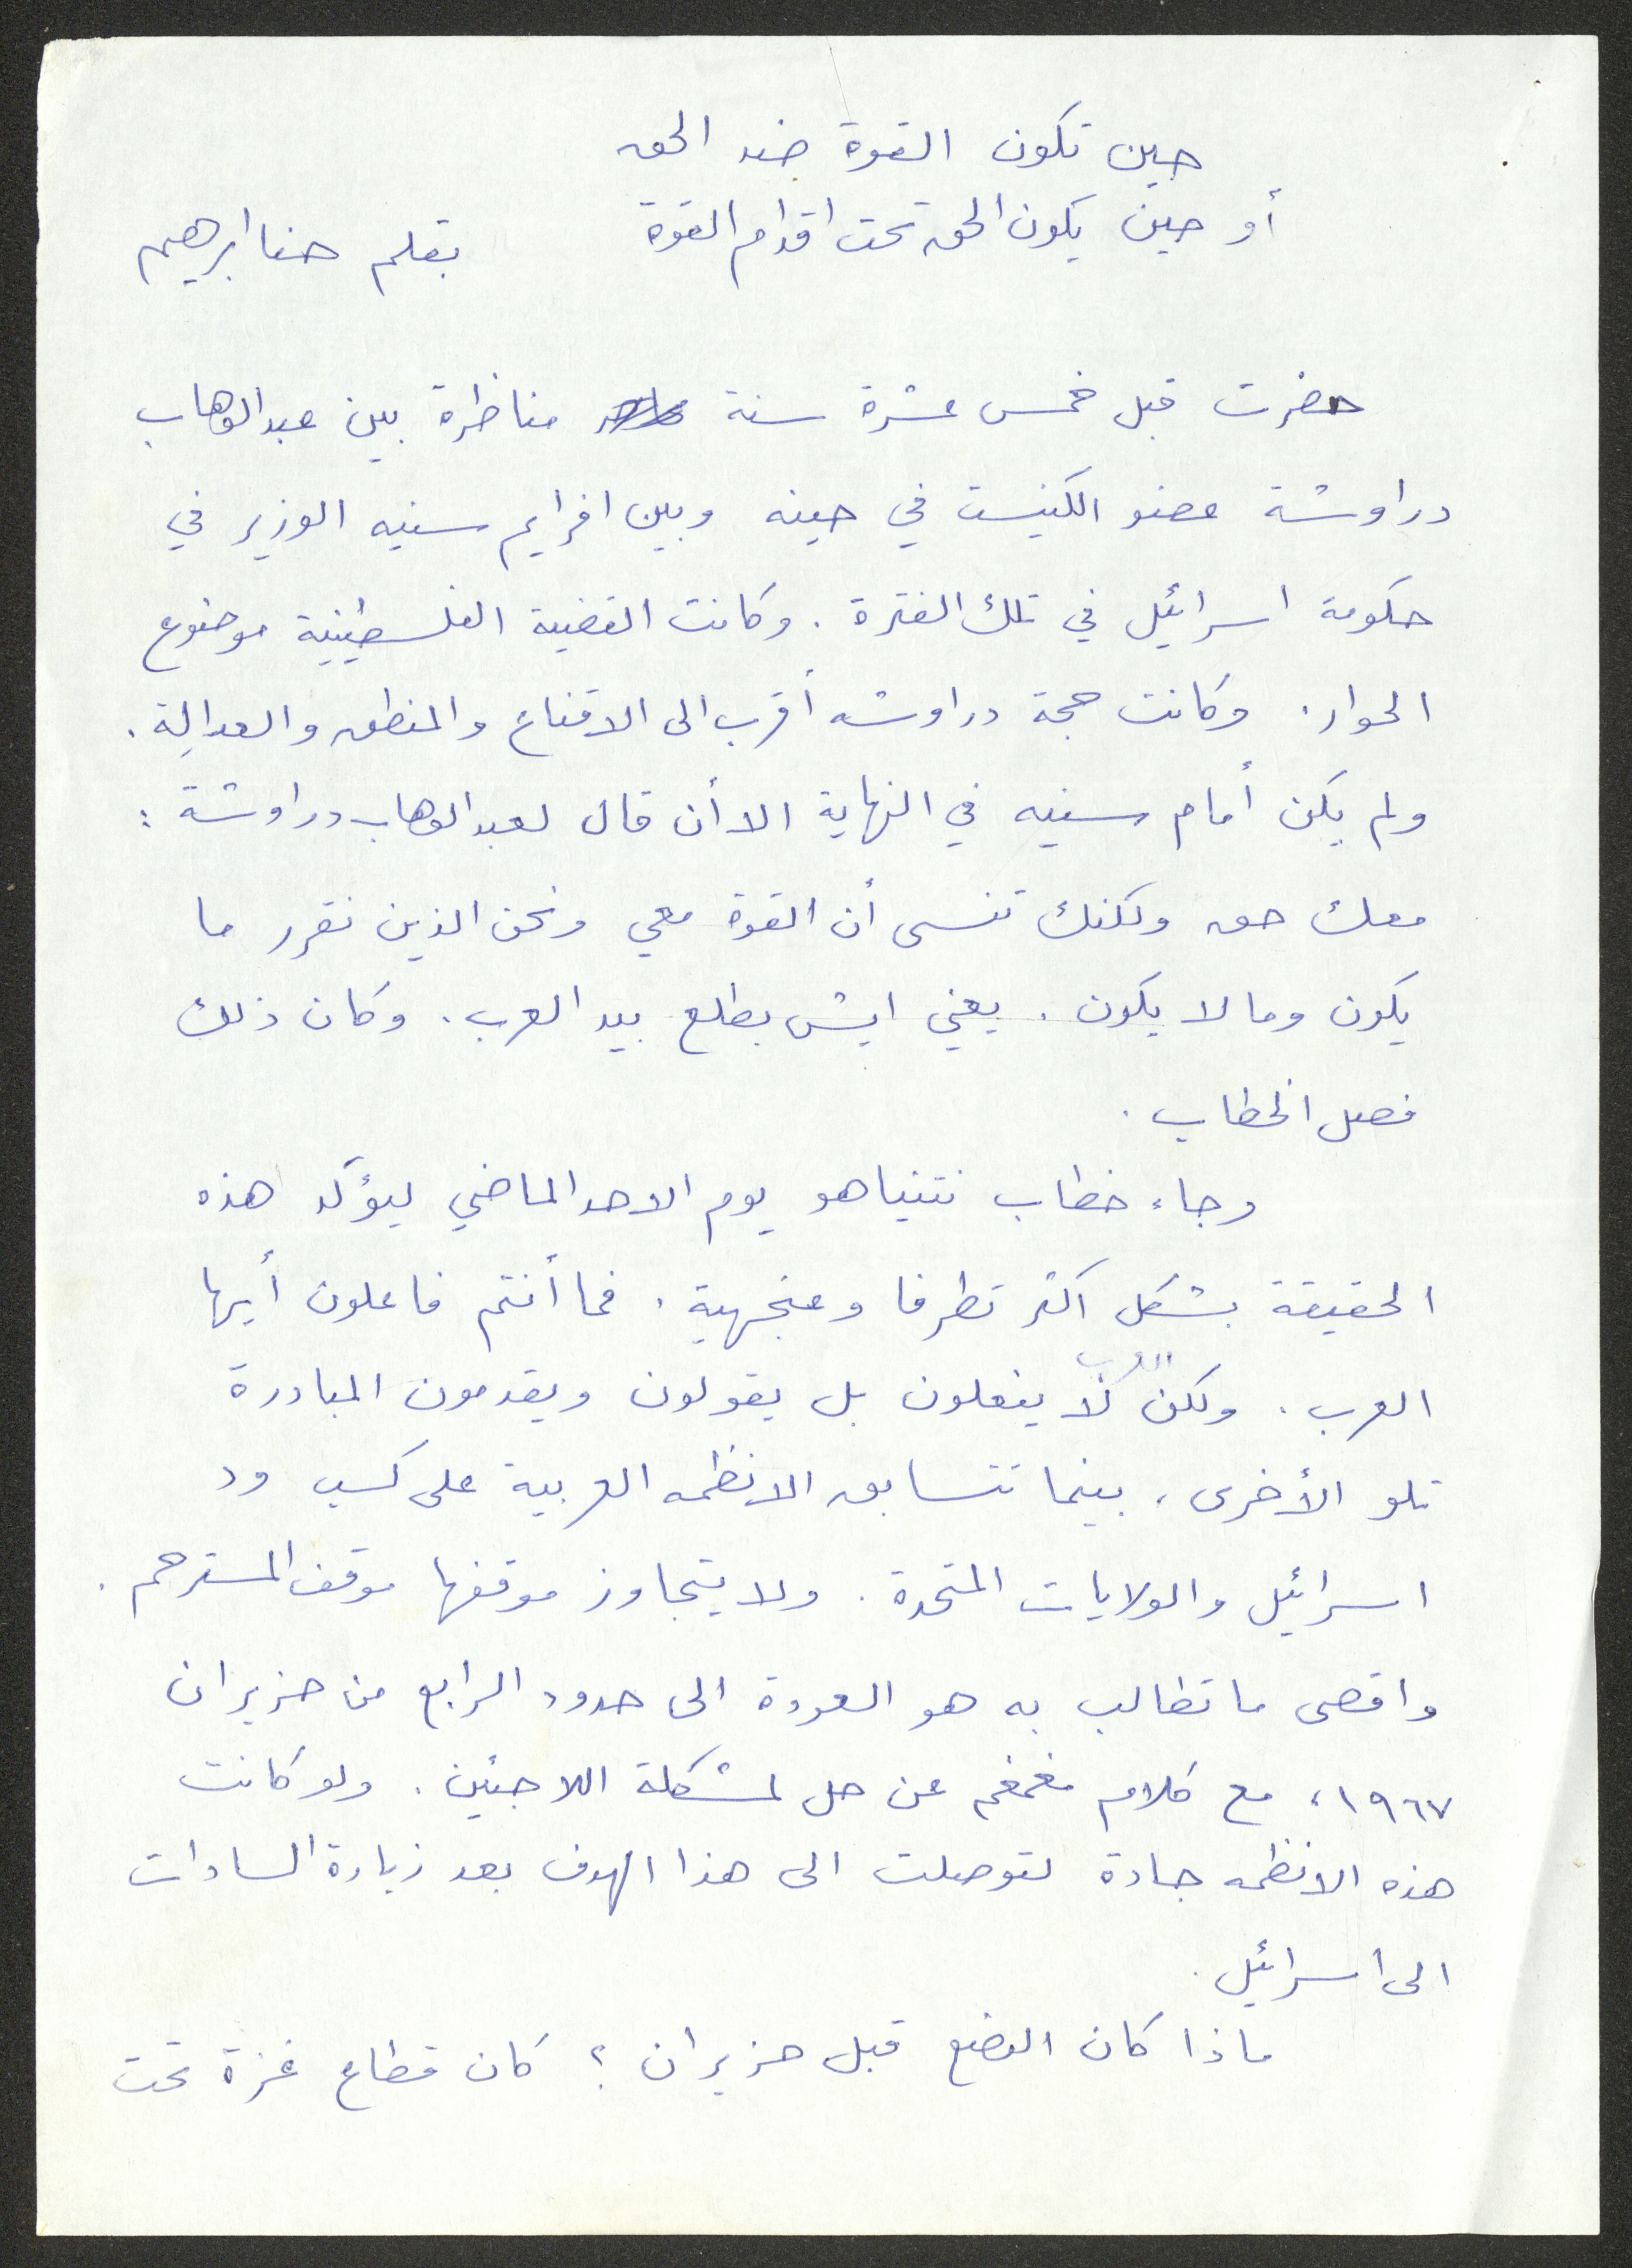 حين تكون القوة ضد الحق
أو حين يكون الحق تحت اقدام القوة
بقلم حنا ابرهيم
حضرت قبل خمس عشرة سنة مناظرة بين عبد الوهاب
دراوشة عضو الكنيست في حينه وبين افرايم سنيه الوزير في
حكومة اسرائيل في تلك الفترة . وكانت القضية الفلسطينية موضوع
الحوار . وكانت حجة دراوشه أقرب الى الاقناع والمنطق والعدالة .
ولم يكن أمام سنيه في النهاية الا أن قال لعبد الوهاب دراوشة :
معك حق ولكنك تنسى أن القوة معي ونحن الذين نقرر ما
يكون وما لا يكون . يعني ايش بطلع بيد العرب . وكان ذلك
فصل الخطاب .
وجاء خطاب نتنياهو يوم الاحد الماضي ليؤكد هذه
الحقيقة بشكل اكثر تطرفا وعنجهية . فما أنتم فاعلون أيها
العرب . ولكن العرب لا يفعلون بل يقولون ويقدمون المبادرة
تلو الأخرى ، بينما تتسابق الانظمه العربية على كسب ود
اسرائيل والولايات المتحدة . ولا يتجاوز موقفها موقف المسترحم .
واقصى ما تطالب به هو العودة الى حدود الرابع من حزيران
١٩٦٧ ، مع كلام مغمغم عن حل لمشكلة اللاجئين . ولو كانت
هذه الانظمه جادة لتوصلت الى هذا الهدف بعد زيارة السادات
الى اسرائيل .
ماذا كان الوضع قبل حزيران ؟ كان قطاع غزة تحت